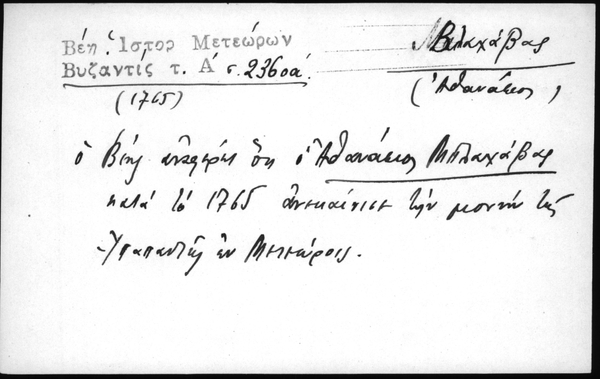 Βέη Ἱστορ Μετεώρων
Βυζαντίς τ. Α΄ σ. 236οα΄.
(1765)
Βλαχάβας
(Ἀθανάσιος)
ὁ Βέης ἀναφέρει ὅτι ὁ Ἀθανάσιος Μπλαχάβας
κατά τό 1765 ἀνεκαίνισε τήν μονήν τῆς
Ὑπαπαντῆς ἐν Μετεώροις.